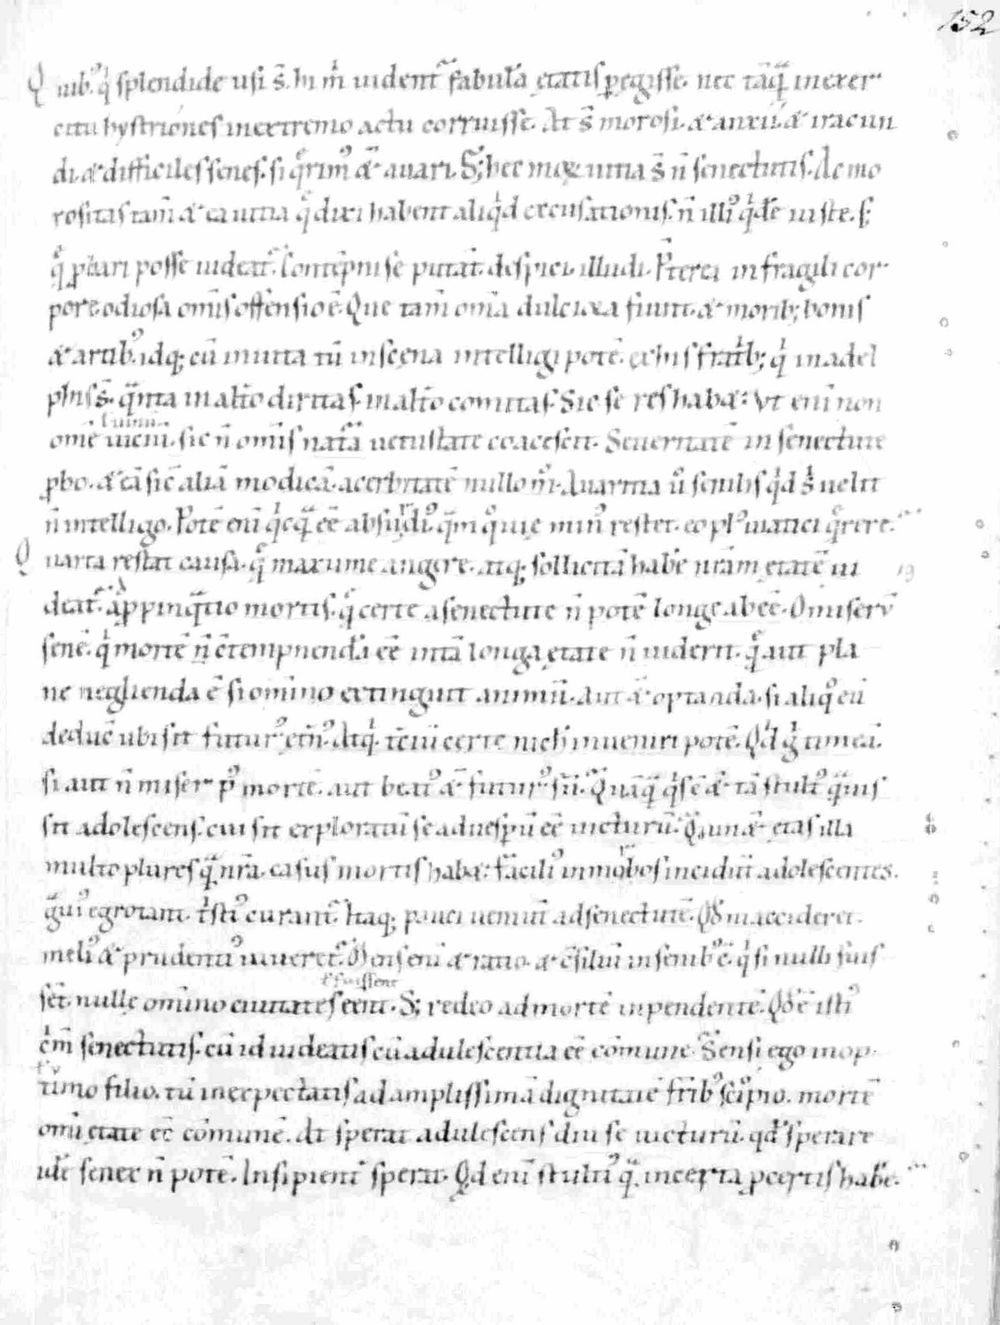 152
Quib᷒ q̇ splendide usi s̄. hi m̄ uident᷑ fabulā ętatis ꝑegisse. nec tāq̄ inexer-
citati hystriones inextremo actu corruisse. At s̄ morosi. & anxii. & iracun
di. & difficiles senes. si q̄rim᷒ & auari. S; hęc morū uitia s̄ n̄ senectutis. Ac mo
rositas tam̄ & ea uitia q̄ dixi habent aliq̇d excusationis. n̄ illi᷒ q̇dē iuste. s;
q̄ ꝓbari posse uideat᷑. Contēpni se putāt. despici. illudi. Pterea in fragili cor-
pore. odiosa omīs offensio ē. Que tam̄ om̄ia dulciora fiunt. & morib; bonis
& artib᷒. idq; cū in uita tū in scena intelligi potē. ex his fratrib; q̇ in adel
phis s̄. q̄nta in alt̄o diritas. in alt̄o comitas. Sic se res habet: Vt eni non
ōme uinū. sic n̄ omīs natā uetustate coacescit. Seueritatē in senectute
ꝓbo. & eā sic̄ aliā modicā. acerbitatē nullo m̊. Auaritia ū senilis q̇d s̄ uelit
n̄ intelligo. Potē eni q̇cq̄ eē absurdi᷒ q̄m q̊ uię min᷒ restet. eo pl᷒ uiatici q̄rere.
Quarta restat causa. q̄ maxime angere. atq; sollicitā habē nrām ętatē ui
deat᷑. appinq̄tio mortis. q̄ certe a senectute n̄ potē longe abeē. O miserū
senē. q̇ mortē n̄ ētempnendā eē in tā longa ętate n̄ uiderit. q̄ aut pla
ne neglienda ē si omīno extinguit animū. Aut & optanda. si aliq᷒ eū
deducˉ ubi sit futur᷒ ętn᷒. Atq̇. tēiū certe nich̄ inueniri potē. Qd g̊ timeā.
si aut n̄ miser p᷒ mortē. aut beat᷒ & futur᷒ sū. Quāq̄ q̇s ē & tā stult᷒ q̄uis
sit adolescens. cui sit exploratū se ad uesꝑū eē uicturū. Qn & ętas illa
multo plures q̄ nrā. casus mortis habet: facili᷒ in morbos incidūt adolescentes.
g̊ui᷒ egrotant. t̄sti᷒ curant᷑. Itaq; pauci ueniūt ad senectutē. Qd n̄ accideret.
meli᷒ & prudenti᷒ uiueret᷑. Mens eni & ratio. & c̄siliū in senib᷒ ē. q̇ si nulli fuis
l fuissent
sēt. nulle omīno ciuitates eent. S; redeo ad mortē inpendentē. Qd ē isti᷒
c̊m̄ senectutis. cū id uideatis cū adulescentia eē cōmune. Sensi ego in op
timo filio. tū in exspectatis ad amplissimā dignitatē frīb᷒ scipio. mortē
omi ętate eē comunē. At sperat adulescens diu se uicturū. qd sperare
idē senex n̄ potē. Insipient᷑ sperat. Qd eni stulti᷒ q̄ incerta ꝓ certis habē.